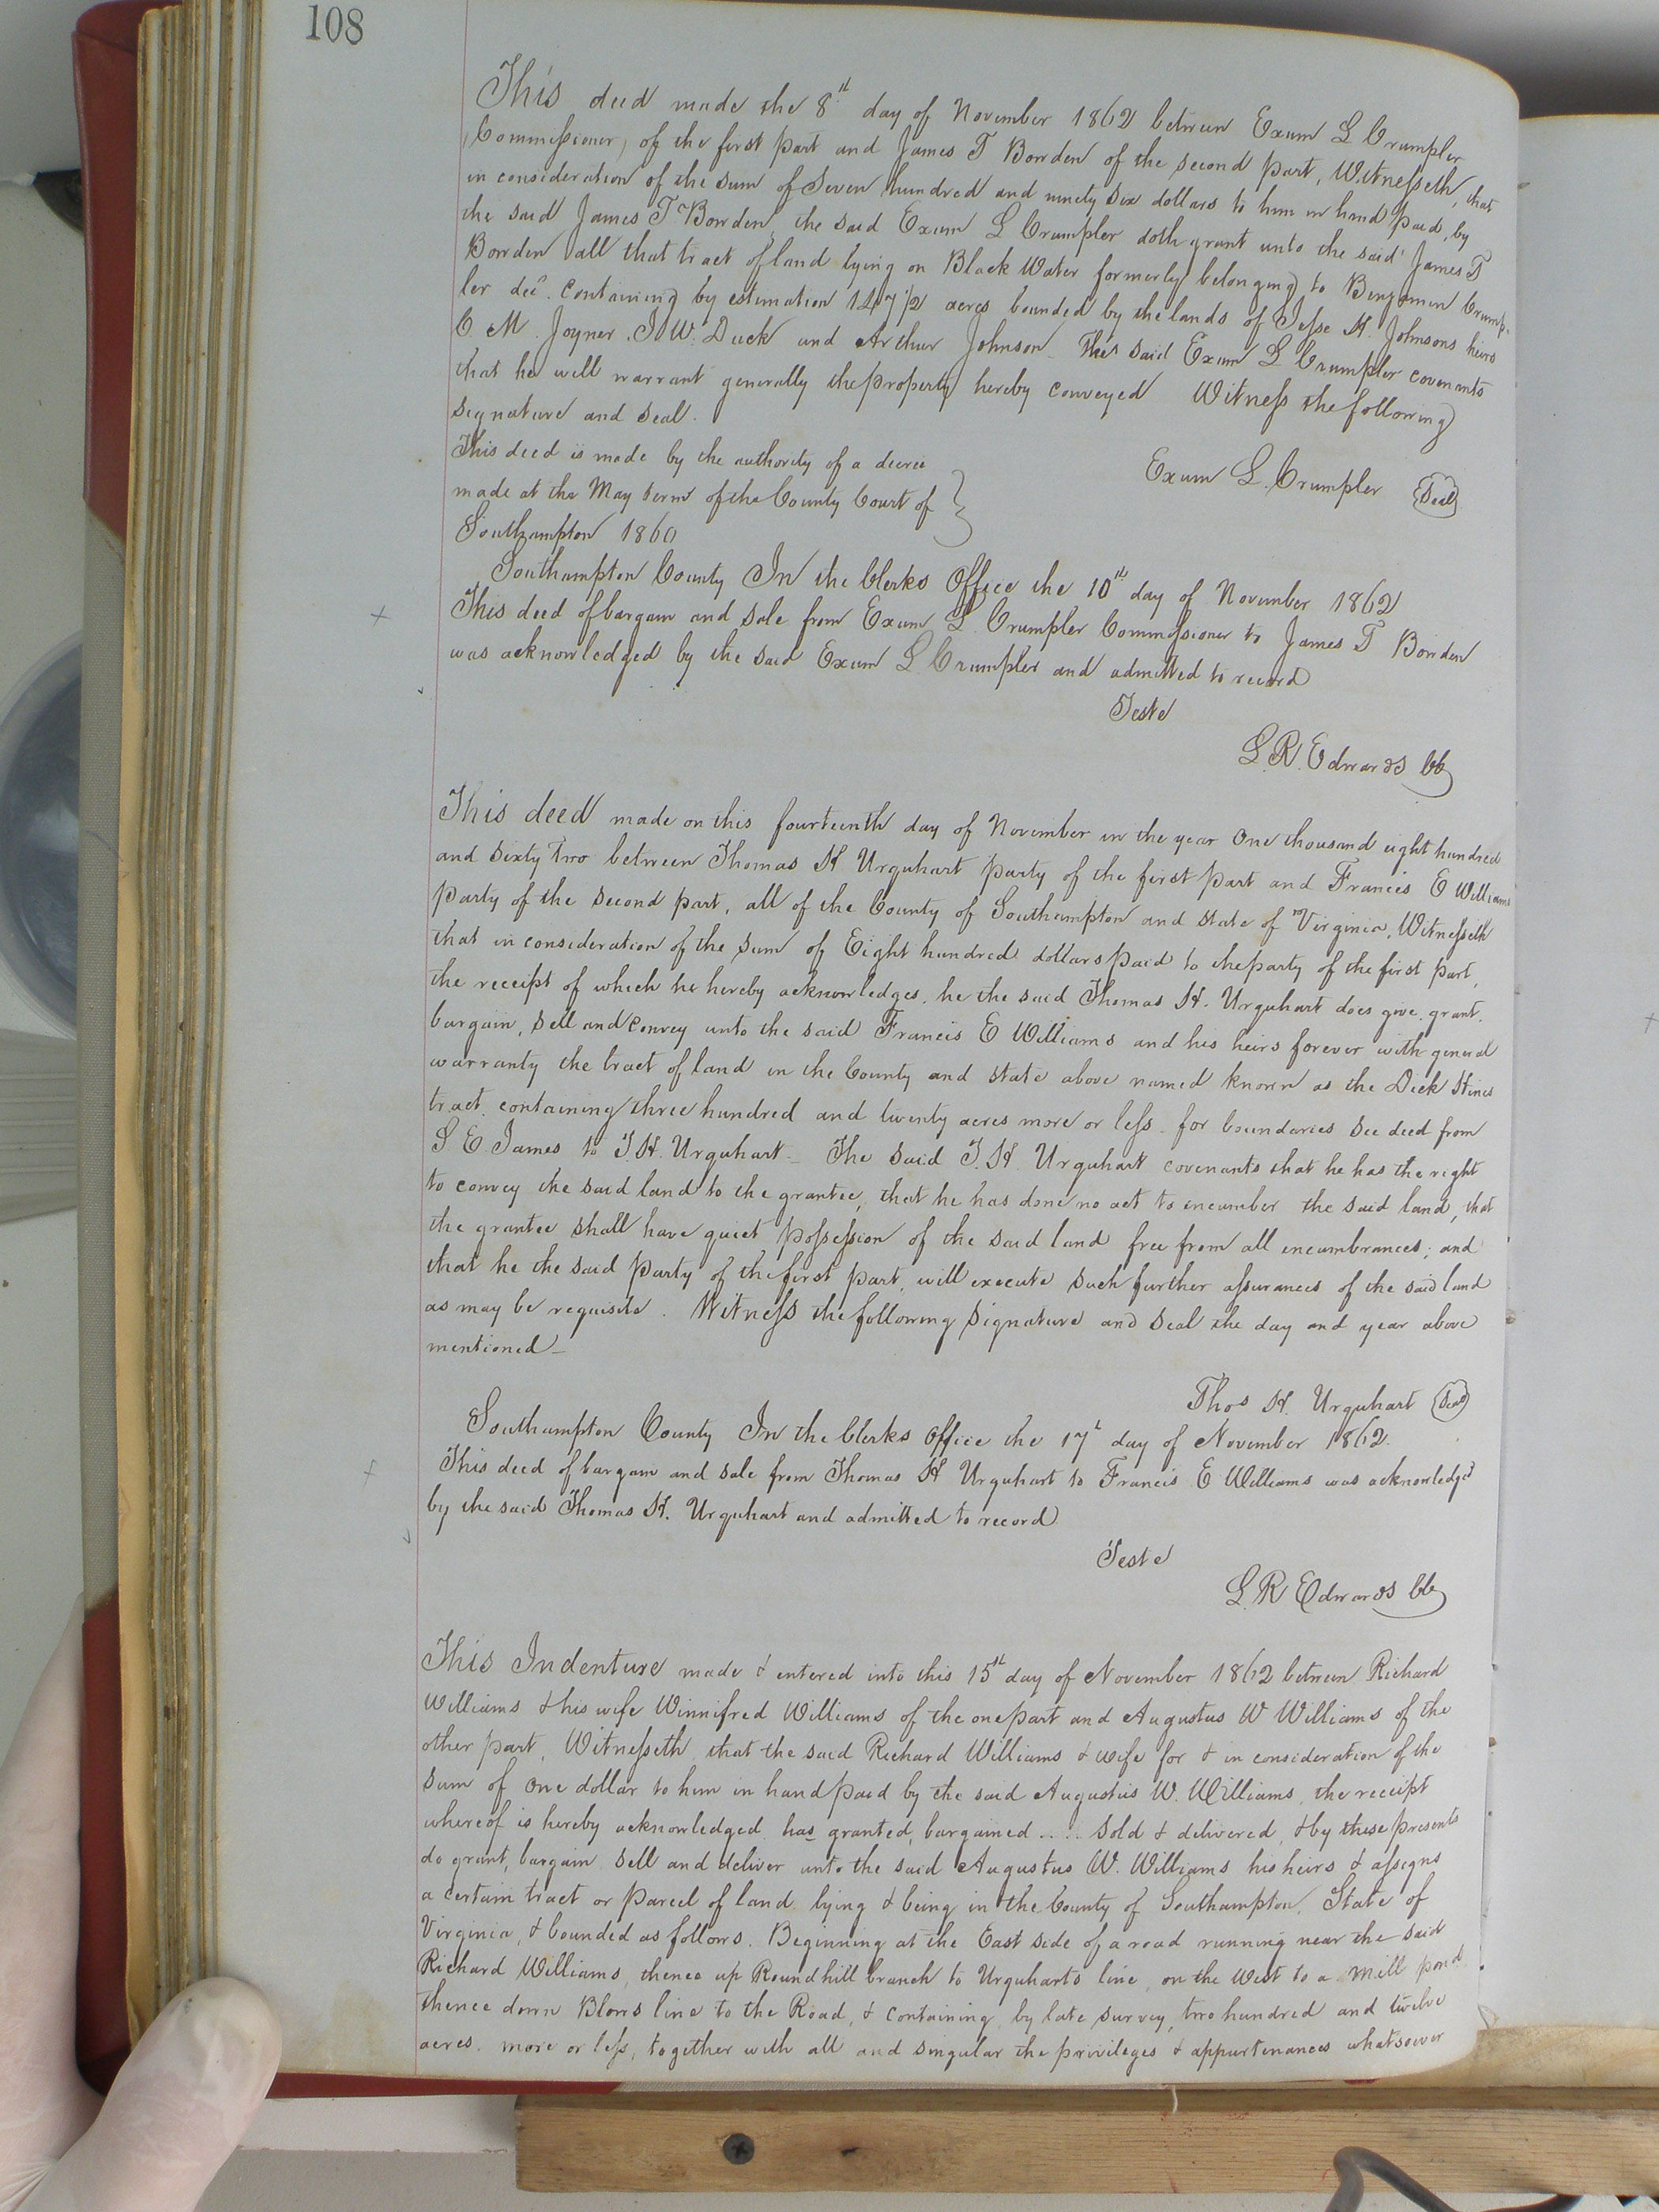 108
This deed made the 8th day of November 1862 between Exum L Crumpler
(Commissioner) of the first part and James T Bowden of the second part, Witnesseth, that
in consideration of the sum of Seven hundred and ninety six dollars to him in hand paid, by
the said James T Bowden, the said Exum L Crumpler doth grant unto the said James T
Bowden all that tract of land lying on Black Water formerly belonging to Benjamin Crump-
ler decd. Containing by estimation 147 1/2 acres bounded by the lands of Jesse H. Johnsons heirs
C. M. Joyner J. W. Duck and Arthur Johnson. The said Exum L Crumpler covenants
that he will warrant generally the property hereby conveyed Witness the following
signature and seal.
This deed is made by the authority of a decree
made at the May term of the County Court of
Southampton 1860
Exum L. Crumpler Seal
Southampton County In the Clerks Office the 10th day of November 1862
This deed of bargain and sale from Exum L. Crumpler Commissioner to James T Bowden
was acknowledged by the said Exum L Crumpler and admitted to record
Teste
L. R. Edwards CC
This deed made on this fourteenth day of November in the year One thousand eight hundred
and Sixty Two between Thomas H Urquhart party of the first part and Francis E Williams
party of the second part, all of the County of Southampton and State of Virginia, Witnesseth
that in consideration of the sum of Eight hundred dollars paid to the party of the first part,
the receipt of which he hereby acknowledges, he the said Thomas H. Urquhart does give, grant,
bargain, sell and convey unto the said Francis E Williams and his heirs forever with general
warranty the tract of land in the County and State above named known as the Dick Hines
tract, containing three hundred and twenty acres more or less - for boundaries see deed from
S. E. James to T. H. Urquhart - The said T. H. Urquhart covenants that he has the right
to convey the said land to the grantee, that he has done no act to incumber the said land, that
the grantee shall have quiet possession of the said land free from all incumbrances; and
that he the said party of the first part, will execute such further assurances of the said land
as may be requisite. Witness the following signature and seal the day and year above
mentioned -
Thos H. Urquhart Seal
Southampton County In the Clerks Office the 17th day of November 1862.
This deed of bargain and sale from Thomas H Urquhart to Francis E Williams was acknowledged
by the said Thomas H. Urquhart and admitted to record
Teste
L. R Edwards CC
This Indenture made & entered into this 15th day of November 1862 between Richard
Williams & his wife Winnifred Williams of the one part and Augustus W Williams of the
other part, Witnesseth, that the said Richard Williams & wife for & in consideration of the
sum of One dollar to him in hand paid by the said Augustus W. Williams, the receipt
whereof is hereby acknowledged has granted, bargained .... sold & delivered, & by these presents
do grant, bargain sell and deliver unto the said Augustus W. Williams his heirs & assigns
a certain tract or parcel of land lying & being in the County of Southampton, State of
Virginia, & bounded as follows. Beginning at the East side of a road running near the said
Richard Williams, thence up Roundhill branch to Urquharts line, on the West to a Mill pond
thence down Blows line to the Road, & containing by late survey, two hundred and twelve
acres, more or less, together with all and singular the privileges & appurtenances whatsoever